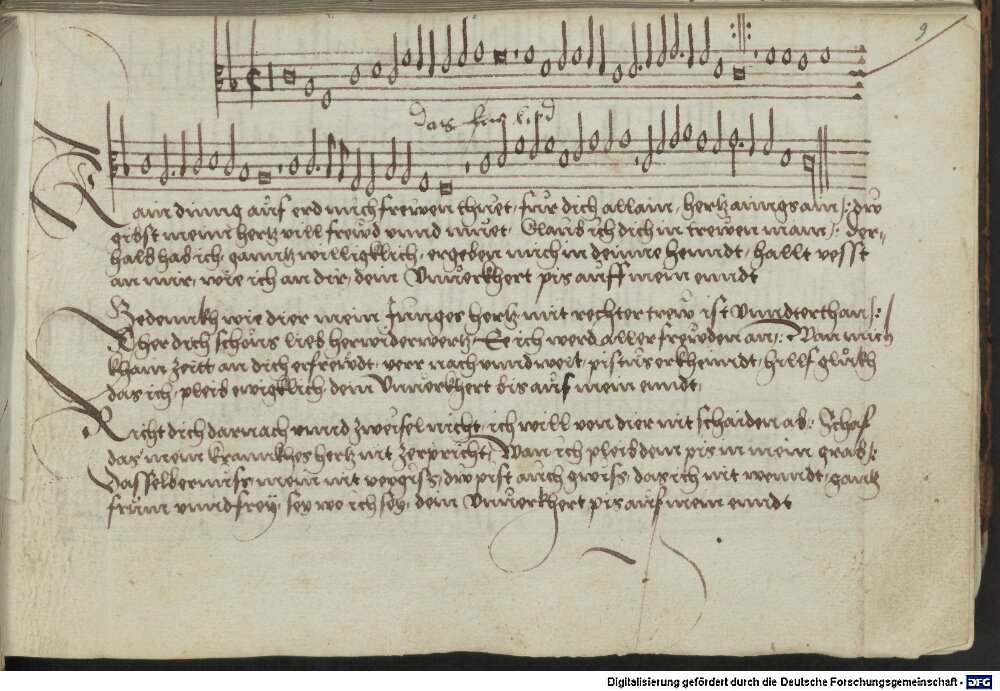 9
das
Kain dinng auf erd mich frewen thuet, fur dich allain, hertz ainigs ain /: dw
gibst meim hertz vill frewd vnnd muet, Glaub ich dich in trewen main /: Der-
halb hab ich, ganntz williklich, ergeben mich in deinne henndt, hallt vesst
an mir, wie ich an dir, dein Vnuerkhert pis auff mein enndt
Bedennkh wie dier mein Junges hertz mit rechter trew ist Vnndterthan /:
kher dich schöns lieb herwiderwertz, Ee ich werd aller frewden an /: Wan mich
kham zeitt an dich erfrewdt, verr nach vnnd weit, pis vns erkhenndt, hillf glükh
das ich, pleib ewigklich, dein Vnuerkhert bis auf mein enndt,
Richt dich darnach vnnd zweifel nicht, ich will von dier nit schaiden ab: Schaf
das mein krannkhes hertz nit zerpricht, Wan ich pleib dein pis in mein grab /:
Dasselb vergiss, mein nit vergiss, dw pist auch gwiss, das ich nit wenndt, gantz
frum vnnd frey, sey wo ich sey, dein Vnuerkhert pis auf mein enndt
Digitalisierung gefördert durch die Deutsche Forschungsgemeinschaft - DFG